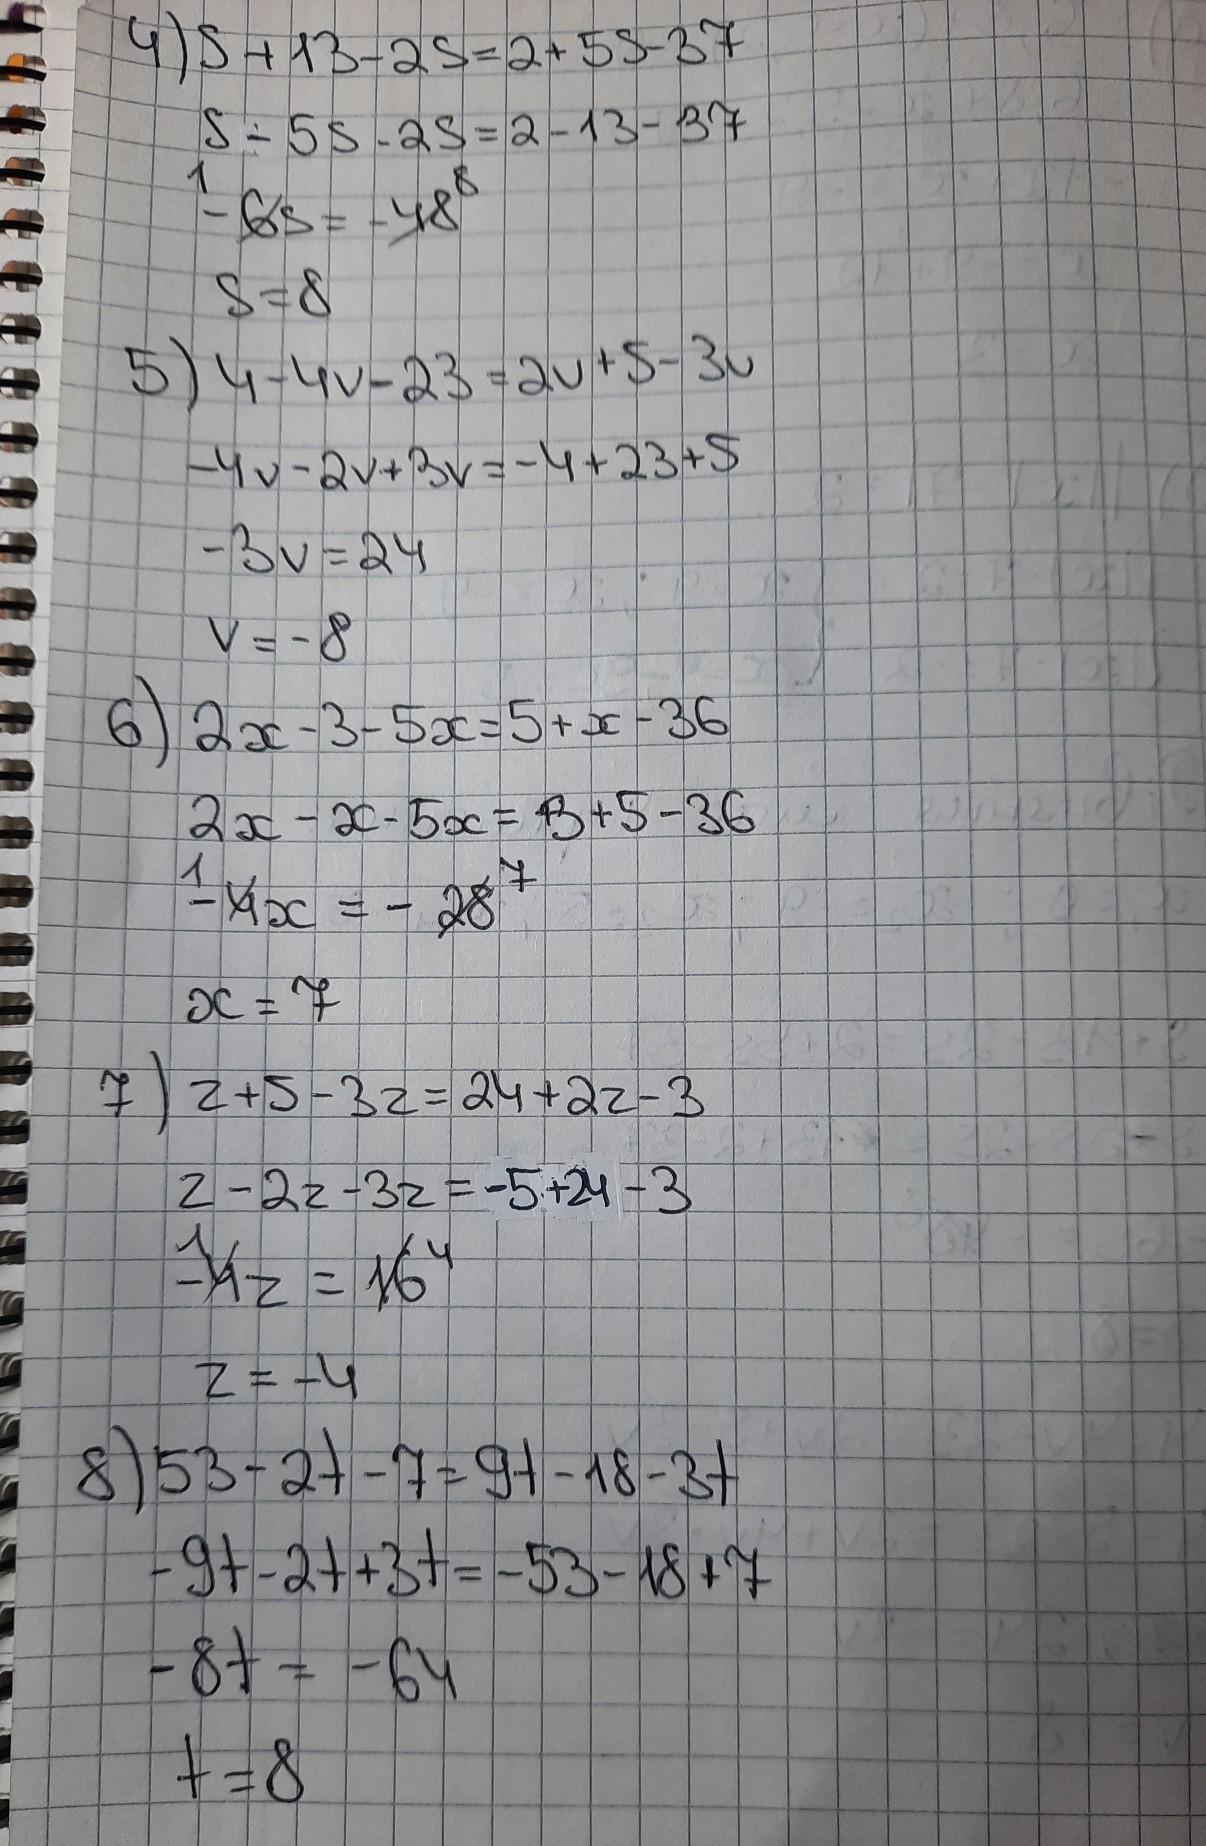 4) S+13-2S=2+5S-37
S-5S-2S=2-13-37
1 -6S=-48 8
S=8
5) 4-4v-23=2v+5-3v
-4v-2v+3v=-4+23+5
-3v=24
v=-8
6) 2x-3-5x=5+x-36
2x-x-5x=3+5-36
1 -4x=-28 7
x=7
7) z+5-3z=24+2z-3
z-2z-3z=-5+24-3
1 -4z=16 4
z=-4
8) 53-2t-7=9t-18-3t
-9t-2t+3t=-53-18+7
-8t=-64
t=8